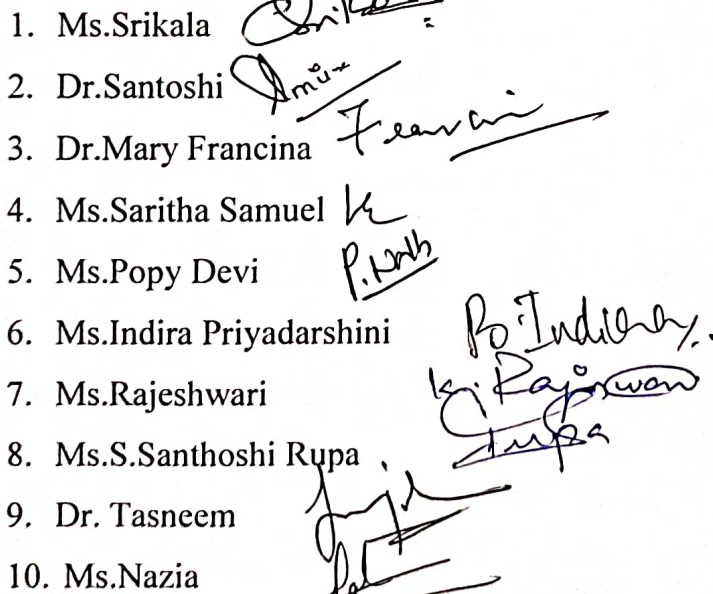 1. Ms.Srikala
2. Dr.Santoshi
3. Dr.Mary Francina
4. Ms.Saritha Samuel
5. Ms.Popy Devi P. Nath
6. Ms.Indira Priyadarshini
7. Ms.Rajeshwari
8. Ms.S.Santhoshi Rupa Rupa
9. Dr. Tasneem
10. Ms.Nazia